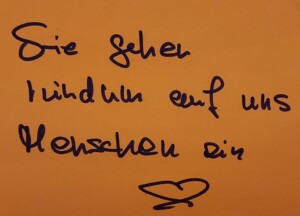 Sie gehen
rundum auf uns
Menschen ein